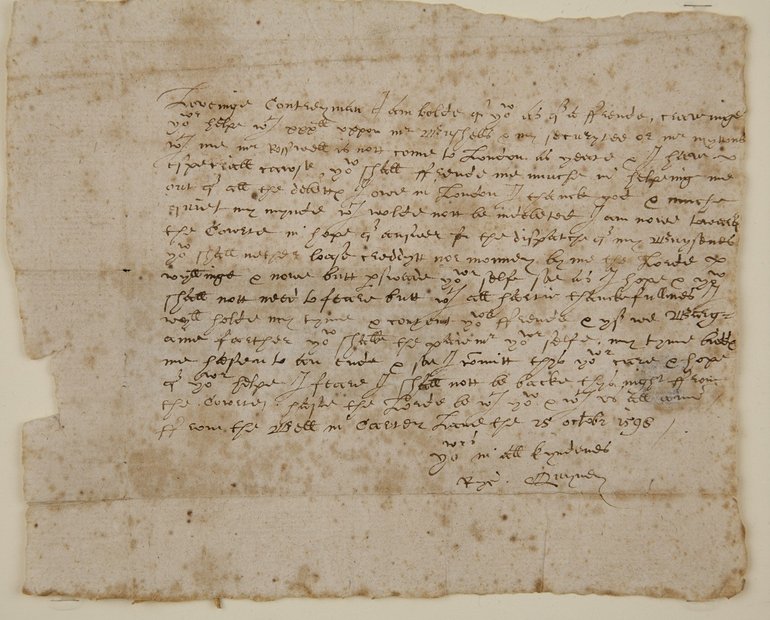 Loveinge Contreyman I am bolde of yow as of a ffrende, craveinge
yowr helpe wth xxxll vppon mr Bushells & my securytee or mr myttons
wth me mr Rosswell is nott come to London as yeate & I have
especiall cawse yow shall ffrende me muche in helpeing me
out of all the debettes I owe in London I thancke god & muche
quiet my mynde wch wolde nott be indebeted I am nowe towardes
the Cowrte in hope of answer for the dispatche of my Buysenes
yow shall nether loase creddytt nor monney by me the Lorde
wyllinge & nowe butt perswade yowr selfe soe as I hope & yow
shall nott need to feare butt wth all hartie thanckefullnes I
wyll holde my tyme & content yowr ffrende & yf we Barg-
aine farther yow shalbe the paiemr yowr selfe my tyme biddes
me hasten to an ende & soe I comitt thys yowr care & hope
of yowr helpe I feare I shall nott be backe thys night ffrom
the Cowrte haste the Lorde be wth yow & wth us all amen
ffrom the Bell in Carter Lane the 25 octobr 1598
yowrs in all kyndenes
Ryc. Quyney